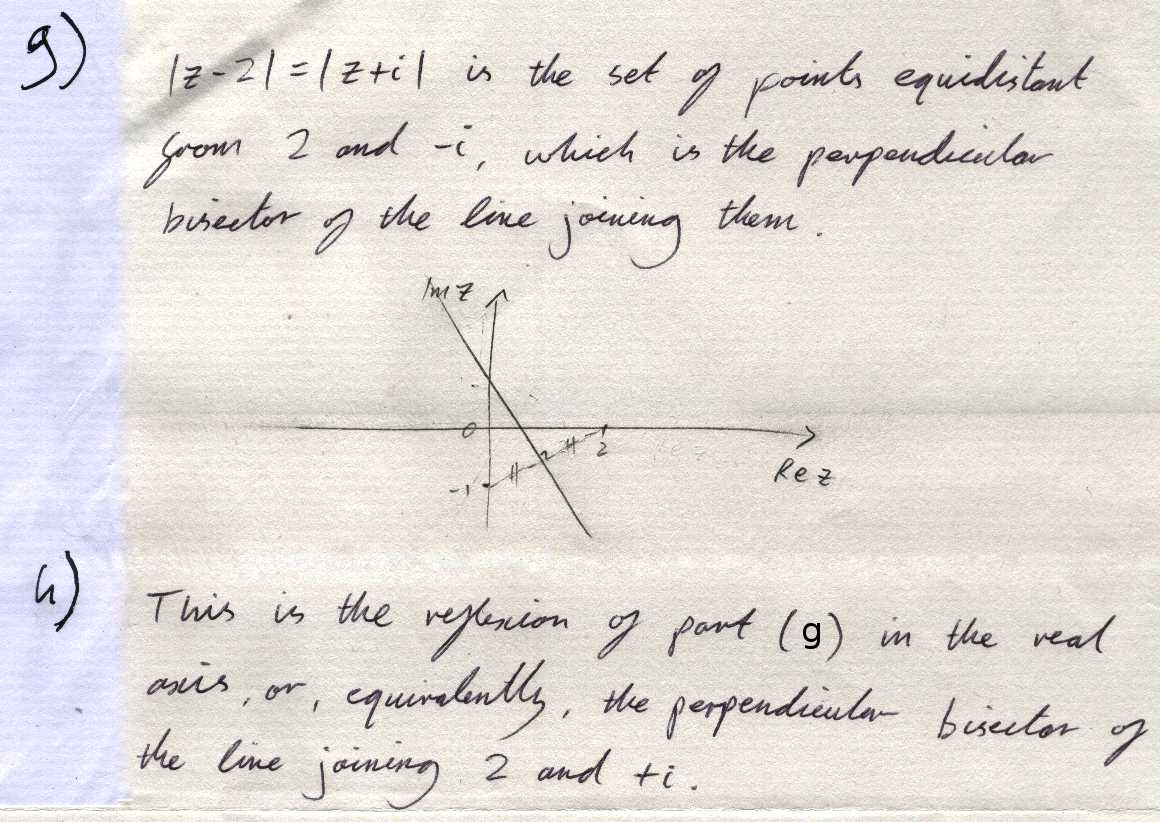 g)
|z-2|=|z+i| is the set of points equidistant
from 2 and -i, which is the perpendicular
bisector of the line joining them.
Im z
0
2
-1
Re z
h)
This is the reflexion of part (g) in the real
axis, or, equivalently, the perpendicular bisector of
the line joining 2 and +i.